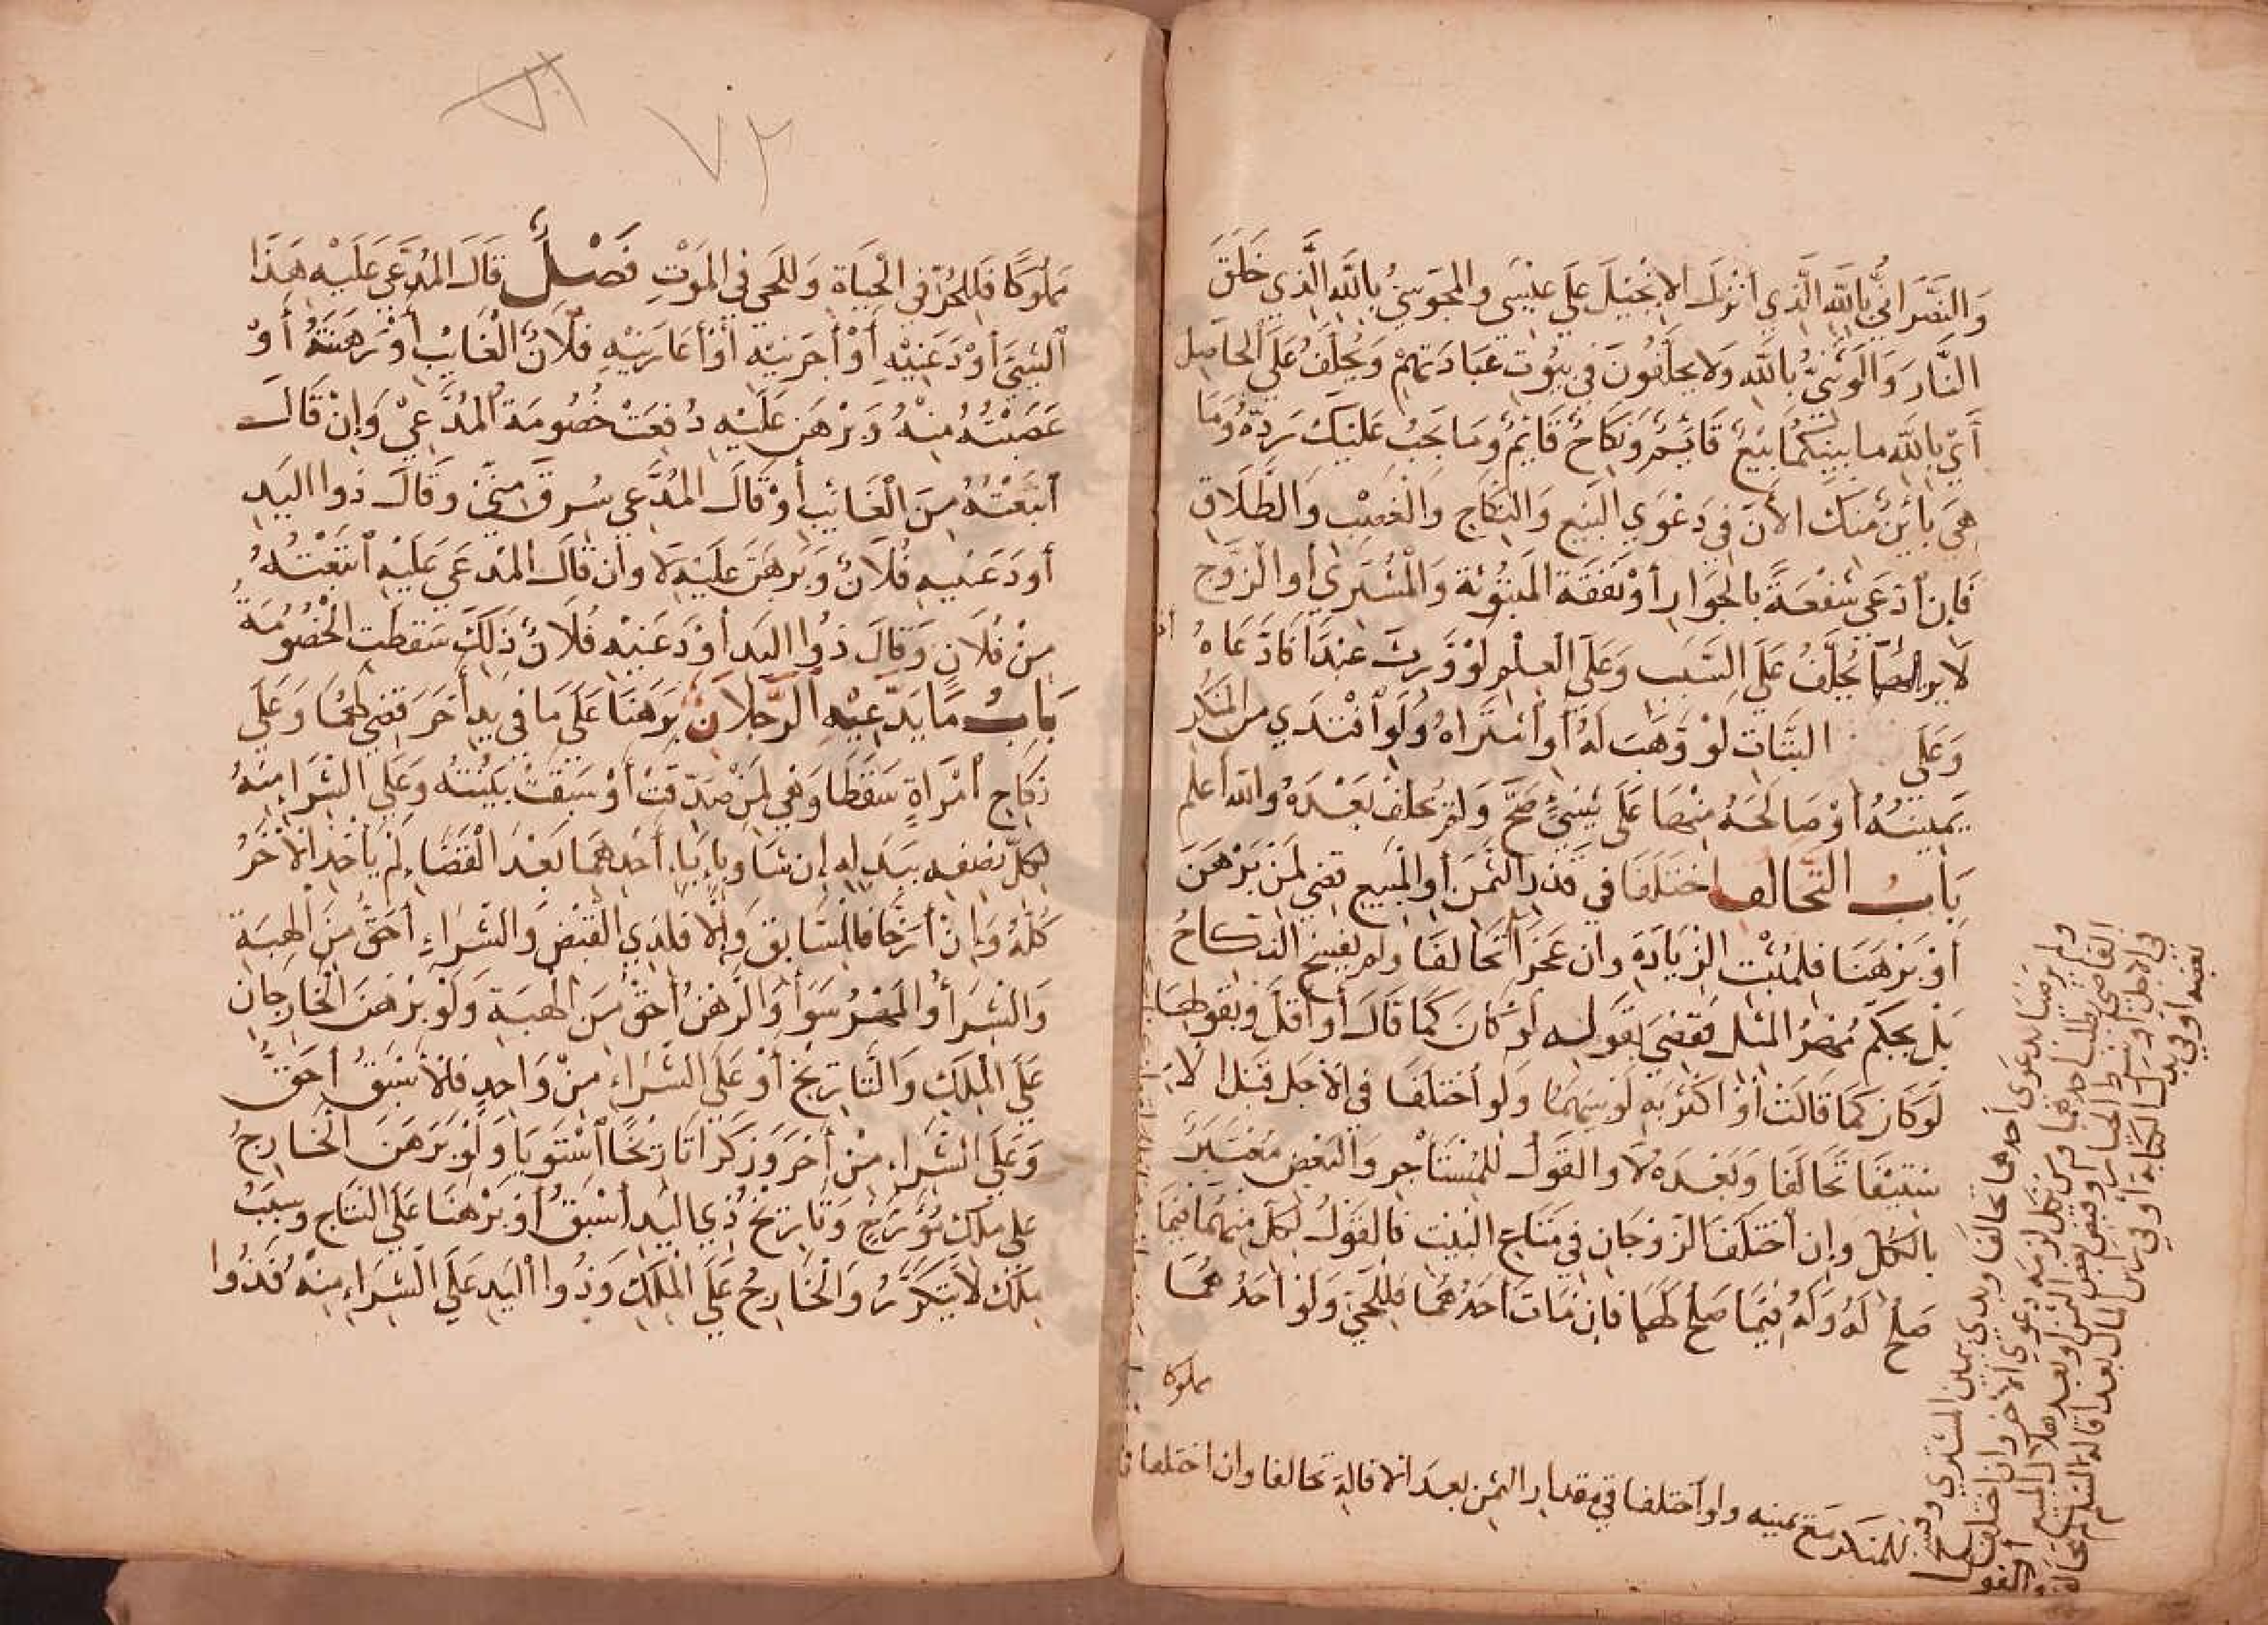 وَالنَّصْرَانِيُّ بِاللَّهِ الَّذِي أَنْزَلَ الإِنْجِيلَ عَلَى عِيسَى والمجَوسِيُّ بِاللَّهِ الَّذِي خَلَقَ
النَّارَ وَالْوَثَنِيُّ بِاللَّهِ وَلا يحلفُونَ في بيُوتِ عِبَادَتِهِمْ وَيُحَلَّفُ عَلَى الحَاصِلِ
أَيْ بِاللَّهِ ما بينَكُمَا بَيْعٌ قَائِمٌ وَنِكَاحٌ قَايِمٌ وَمَا يَجِبُ عَليْكَ رَدّهُ وَمَا
هِيَ بِائِنٌ مِنْكَ الآنَ في دَعْوَي البَيع وَالنِكَاحِ وَالْغَصْبِ وَالطَّلَاقِ
فَإِن أدّعَي شُفْعَةً بالجِوَارِ أَوْ نَفَقَةَ المَبْتُوتَةِ وَالْمُشْتَرِيْ أو الزَّوجِ
لَا يراهما يُحَلَّفُ عَلَى السَّبَبِ وَعَلَى العلْم لَوْ وَرِثَ عَبْدًا فَادَّعَاهُ
وَعَلَى البَتَاتِ لَوْ وُهِبَ لَهُ أو اشتَرَاهُ وَلَو افْتدَي من المنْكِرِ
يَمِينَهُ أوْ صَالَحَهُ مِنْهَا عَلَى شَيْئٍ صَحَّ وَلَمْ يحلفْ بَعْدَهُ والله أعلم
بَابُ التَّحَالف اختَلَفَا في قَدْرِ الثَّمَنِ أو المَبيعِ قضِي لَمِنْ بَرْهَنَ
أوْ بَرْهَنَا فلمثبت الزِيَادَةِ وان عَجَزَا تحَالفَا ولم يفسخ النكاحُ
بَلْ يحكّم مُهرُ المثل فَقضيَ بقَولِه لَوْ كَانَ كَمَا قَالَ أو أقلَّ وبقولهَا
لَوكانَ كَمَا قَالَتْ أوْ اكْثرَ بهِ لَوْ بينهمَا وَلَو اخْتلفَا في الأجَلِ قبْلَ الاِ
سْتِيفَا تَحَالَفَا وَبَعْدَهُ لاَ والقَولُ للمُسْتَأجرِ وَالبَعْض مُعْتَبَرٌ
بالكُلّ وإن اخْتَلَفَ الزوجَانِ في مَتَاعِ البَيْتِ فَالقَولُ لِكلٍّ مِنْهُمَا فيمَا
صَلحَ لَهُ وَلَهُ فِيمَا صَلحَ لَهمَا فَإِن مَاتَ أحَدُهُمَا فَلِلْحَيّ وَلَوْ أحَدُهُمَا
مملوكا
للمنكر مع يمينه ولو اختلفا في مقدار الثمن بعد الاقالة تحالفا وان اختلفا
ولم يرضيا بدعوى احدهما تحالفا وبدي بيمين المشتري
القاضي بطلب احدهما ومن نكل لزمه دعوي الاخر وان اختلفا
في الاجل او شرط الخيار او قبض بعض الثمن او بعد هلاك المبيع
بعضه او في بدل الكتابة او في راس المال بعد اقالة السلم
مَملُوكًا فَلِلْحُرِّ في الْحَيَاةِ وَلِلْحَيِّ في المَوْتِ فَصْلٌ قَالَ المُدَّعَي عَلَيْه هَذَا
الشَّيَ أَوْدَعَنِيْهِ أَوْ أجَرَنِيْهِ أوْ أعَارَنِيْهِ فلَانٌ الْغَايْبِ أَوْ رَهَنَهُ أَوْ
غَصَبْتُهُ مِنْهُ وَبَرْهَن عَلَيْهِ دُفِعَتْ خُصُومَةُ المُدَّعِيْ وَإِنْ قَالَ
ابْتَعْتُهُ مِنَ الْغَائِبِ أَوْ قَالَ المُدَّعي سُرِقَ مِنّي وقَالَ ذوا اليَدِ
أودَعَنيهِ فُلَانٌ وَبَرهَنَ عَليْهِ لَا وان قَالَ المدّعَي عَلَيْهِ ابْتَعْتُهُ
مِنْ فُلَانٍ وَقالَ ذوا اليَد أوْدَعَنِيْه فُلَانٌ ذَلِكَ سَقَطَتِ الخُصُومَةُ
بَابُ مَا يَدَّعِيْهِ الرَّجلانِ بَرهَنَا عَلَى مَا في يدِ أخَرَ قضِيَ لَهُمَا وَعَلَى
نِكَاحِ امْرَأةٍ سَقَطَا وَهْي لمَنْ صَدّقَتْ أوْ سَبَقتْ بَيّنَتُه وَعَلَي الشِرَاءِ مِنْهُ
لِكلّ نصْفه ببَدَلِهِ إن شَا وبإِبَاءِ أحَدِهمَا بَعْدَ القَضَاءِ لَمْ يأخُذ الأخَرُ
كُلَّهُ وَإنْ أرّخَا فَالسَّابق وَإلّا فلذِي القَبْض وَالشّرَاءِ أحَقُّ مِنَ الهِبَةِ
وَالشِرَأُ وَالمَهْرُ سَوَا وَالرَّهْنُ أحَقُّ مِنَ الهِبَةِ وَلَوْ بَرْهَنَ الخَارِجَانِ
عَلَي المُلِكِ وَالتَّارِيخِ أوْ عَلَى الشّرَاءِ مِنْ وَاحِدٍ فَالأسْبَقُ أحَقُّ
وَعَلَى الشّرَاءِ مِنْ أخَرَ وَذكَرَا تَارِيخًا اسْتَوَيَا وَلَوْ بَرْهَنَ الخَارِجُ
عَلَى مِلْكٍ مُؤَرَّخٍ وَتَارِيخُ ذِي اليَدِ أسْبَقُ أوْ بَرْهنَا عَلَى النتَاجِ وسبَبُ
مِلْكٍ لاَ يَتَكَرَّرُ وَالْخَارِجُ عَلَى الْمِلْكِ وَذُوا الْيَدِ عَلَى الشِرَاءِ مِنْهُ فَذُوا